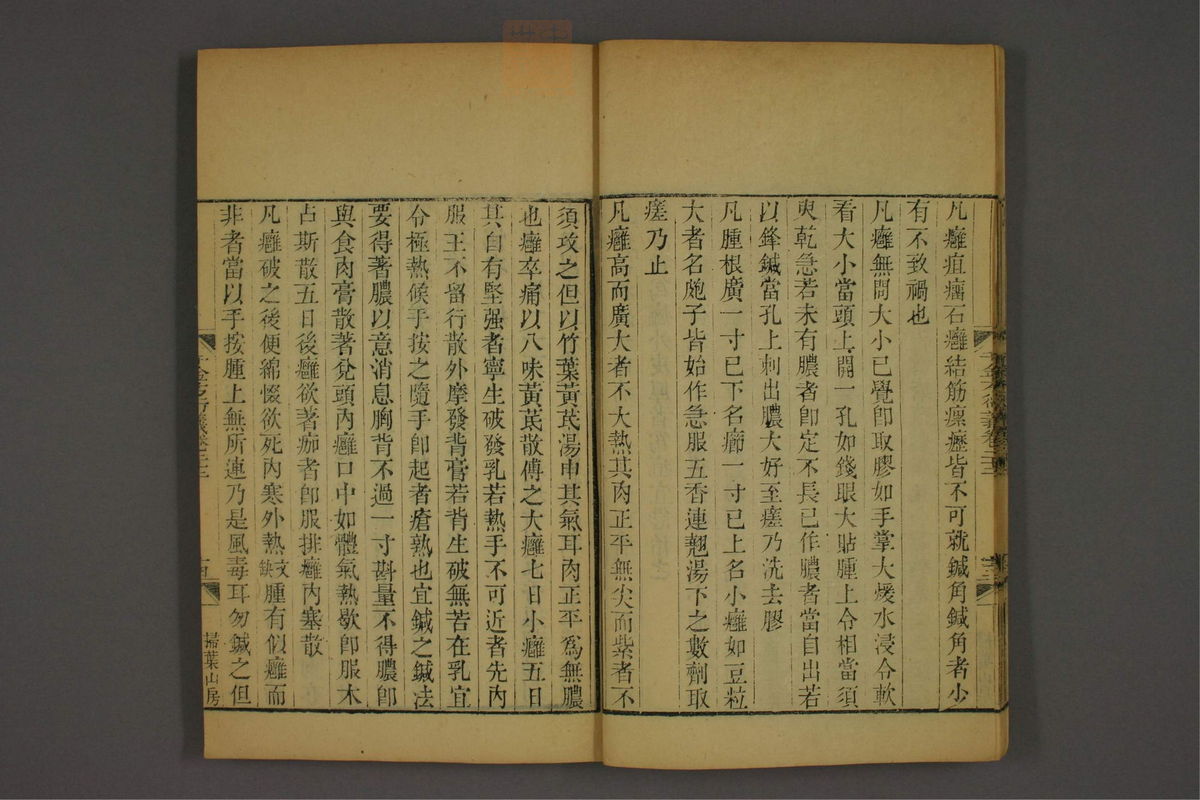 凡癰疽瘤石癰結筋瘰癧皆不可就鍼角鍼角者少
有不致禍也
凡癰無問大小已覺卽取膠如手掌大煖水浸令軟
看大小當頭上開一孔如錢眼大貼腫上令相當須
臾乾急若未有膿者卽定不長已作膿者當自出若
以鋒鍼當孔上刺出膿大好至瘥乃洗去膠
凡腫根廣一寸已下名癤一寸已上名小癰如豆粒
大者名皰子皆始作急服五香連翹湯下之數劑取
瘥乃止
凡癰高而廣大者不大熱其肉正平無尖而紫者不
須攻之但以竹葉黃芪湯申其氣耳肉正平爲無膿
也癰卒痛以八味黃芪散傅之大癰七日小癰五日
其自有堅强者寧生破發乳若熱手不可近者先內
服王不留行散外摩發背膏若背生破無苦在乳宜
令極熱候手按之隨手卽起者瘡熟也宜鍼之鍼法
要得著膿以意消息胸背不過一寸斟量不得膿卽
與食肉膏散著兌頭內癰口中如體氣熱歇卽服木
占斯散五日後癰欲著痂者卽服排癰內塞散
凡癰破之後便綿惙欲死內寒外熱文缺腫有似癰而
非者當以手按腫上無所連乃是風毒耳勿鍼之但
千金方衍義卷二十二
十四
掃葉山房